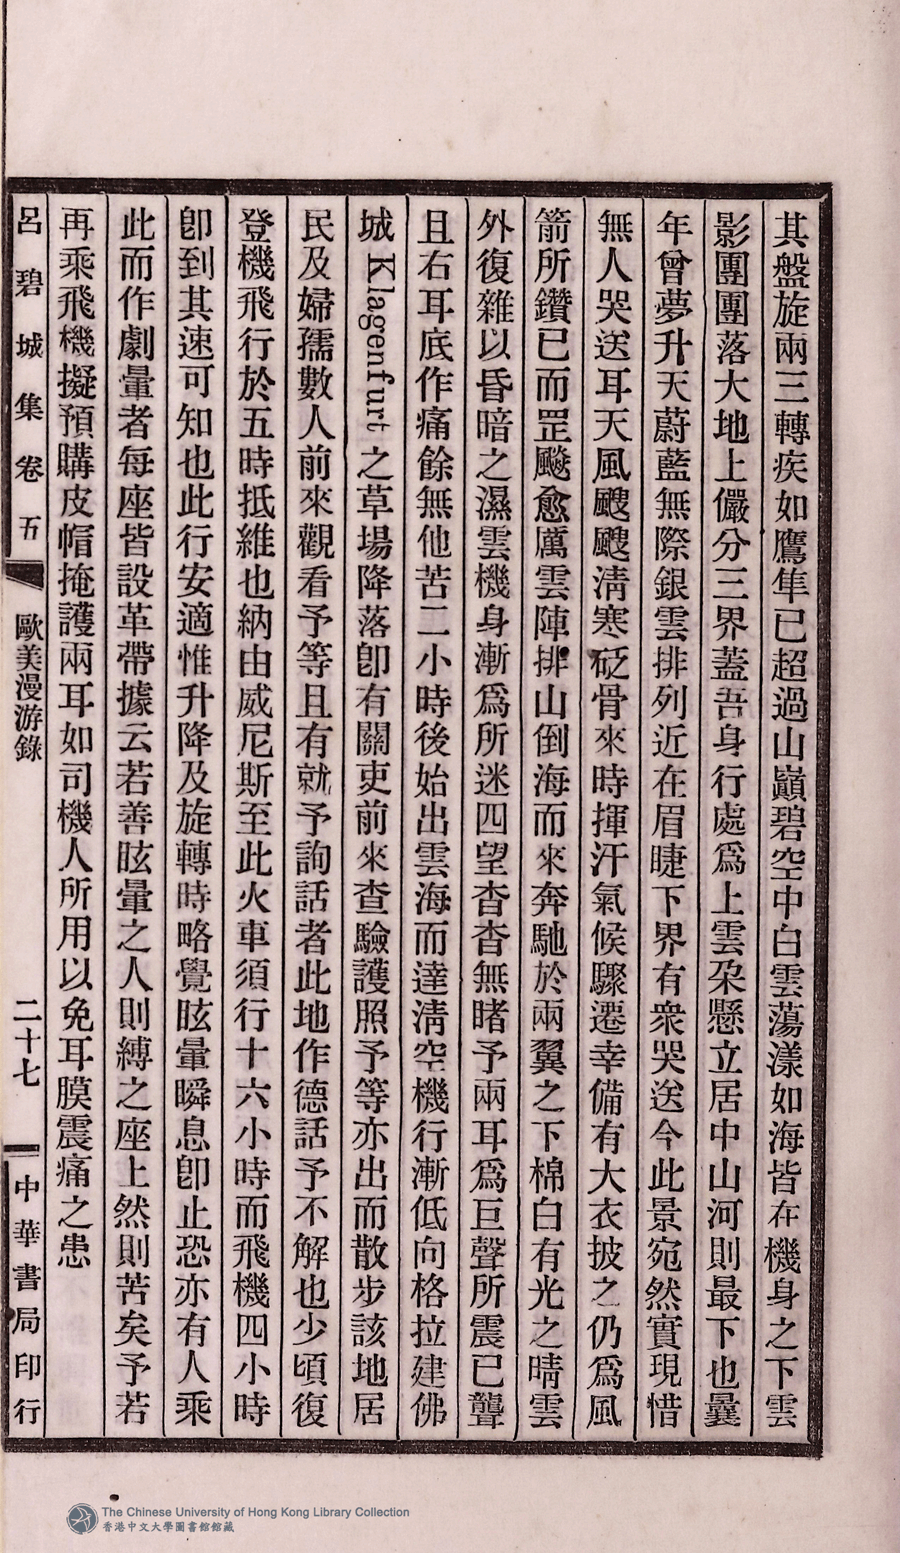 其盤旋兩三轉疾如鷹隼已超過山巔碧空中白雲蕩漾如海皆在機身之下雲
影團團落大地上儼分三界蓋吾身行處爲上雲朶懸立居中山河則最下也曩
年曾夢升天蔚藍無際銀雲排列近在眉睫下界有衆哭送今此景宛然實現惜
無人哭送耳天風颼颼淸寒砭骨來時揮汗氣候驟遷幸備有大衣披之仍爲風
箭所鑽已而罡飈愈厲雲陣排山倒海而來奔馳於兩翼之下棉白有光之晴雲
外復雜以昏暗之濕雲機身漸爲所迷四望杳杳無睹予兩耳爲巨聲所震已聾
且右耳底作痛餘無他苦二小時後始出雲海而達淸空機行漸低向格拉建佛
城 Klagenfurt 之草場降落卽有關吏前來查驗護照予等亦出而散步該地居
民及婦孺數人前來觀看予等且有就予詢話者此地作德話予不解也少頃復
登機飛行於五時抵維也納由威尼斯至此火車須行十六小時而飛機四小時
卽到其速可知也此行安適惟升降及旋轉時略覺眩暈瞬息卽止恐亦有人乘
此而作劇暈者每座皆設革帶據云若善眩暈之人則縛之座上然則苦矣予若
再乘飛機擬預購皮帽掩護兩耳如司機人所用以免耳膜震痛之患
呂碧城集卷五 歐美漫游錄 二十七 中華書局印行
The Chinese University of Hong Kong Library Collection
香港中文大學圖書館館藏